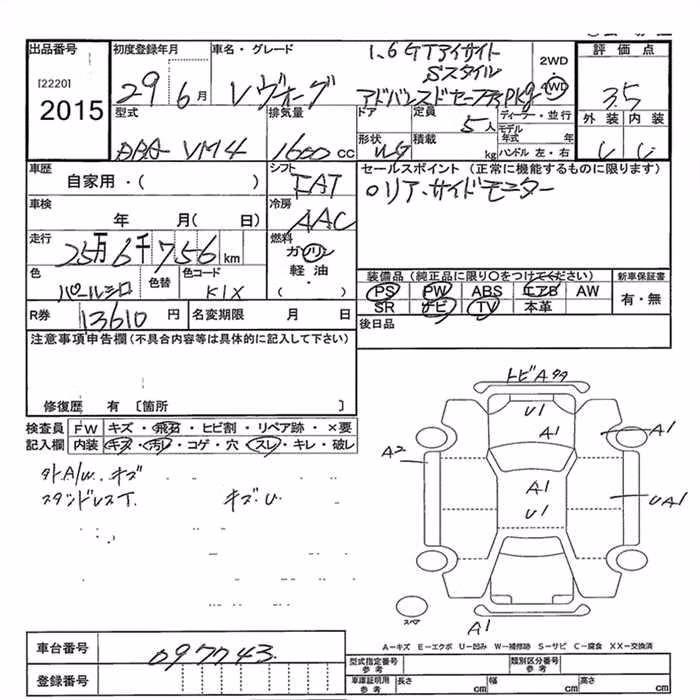 出品番号
[2220]
2015
初度登録年月
29 6 月
車名・グレード
レヴォーグ
1.6 GTアイサイト
Sスタイル
アドバンスドセーフティPkg
2WD
4WD
評価点
3.5
外装 内装
型式
DBA VM4
排気量
1600 cc
ドア
定員
5 人
ディーラー・並行
形状
WG
積載
kg
モデル年式 年
ハンドル 左・右
車歴
自家用・( )
シフト
FAT
セールスポイント (正常に機能するものに限ります)
リア、サイドモニター
車検
年 月( 日)
冷房
AAC
走行
25万6千756 km
燃料
ガソリン
軽油
( )
色
パールシロ
色替
色コード
K1X
装備品 (純正品に限り○をつけてください)
PS PW ABS エアB AW
SR ナビ TV 本革
新車保証書
有・無
R券
13610 円
名変期限 月 日
後日品
注意事項申告欄 (不具合内容等は具体的に記入して下さい)
修復歴 有 〔箇所 〕
検査員 FW キズ・飛石・ヒビ割・リペア跡・×要
記入欄 内装 キズ・汚レ・コゲ・穴・スレ・キレ・破レ
外A/W キズ
キズ、U
トビAタタ
U1
A1
A1
A2
A1
U1
UA1
A1
スペア
A-キズ E-エクボ U-凹み W-補修跡 S-サビ C-腐食 XX-交換済
車台番号
097743
登録番号
型式指定番号 参考
類別区分番号 参考
車庫証明用 参考
長さ cm
幅 cm
高さ cm